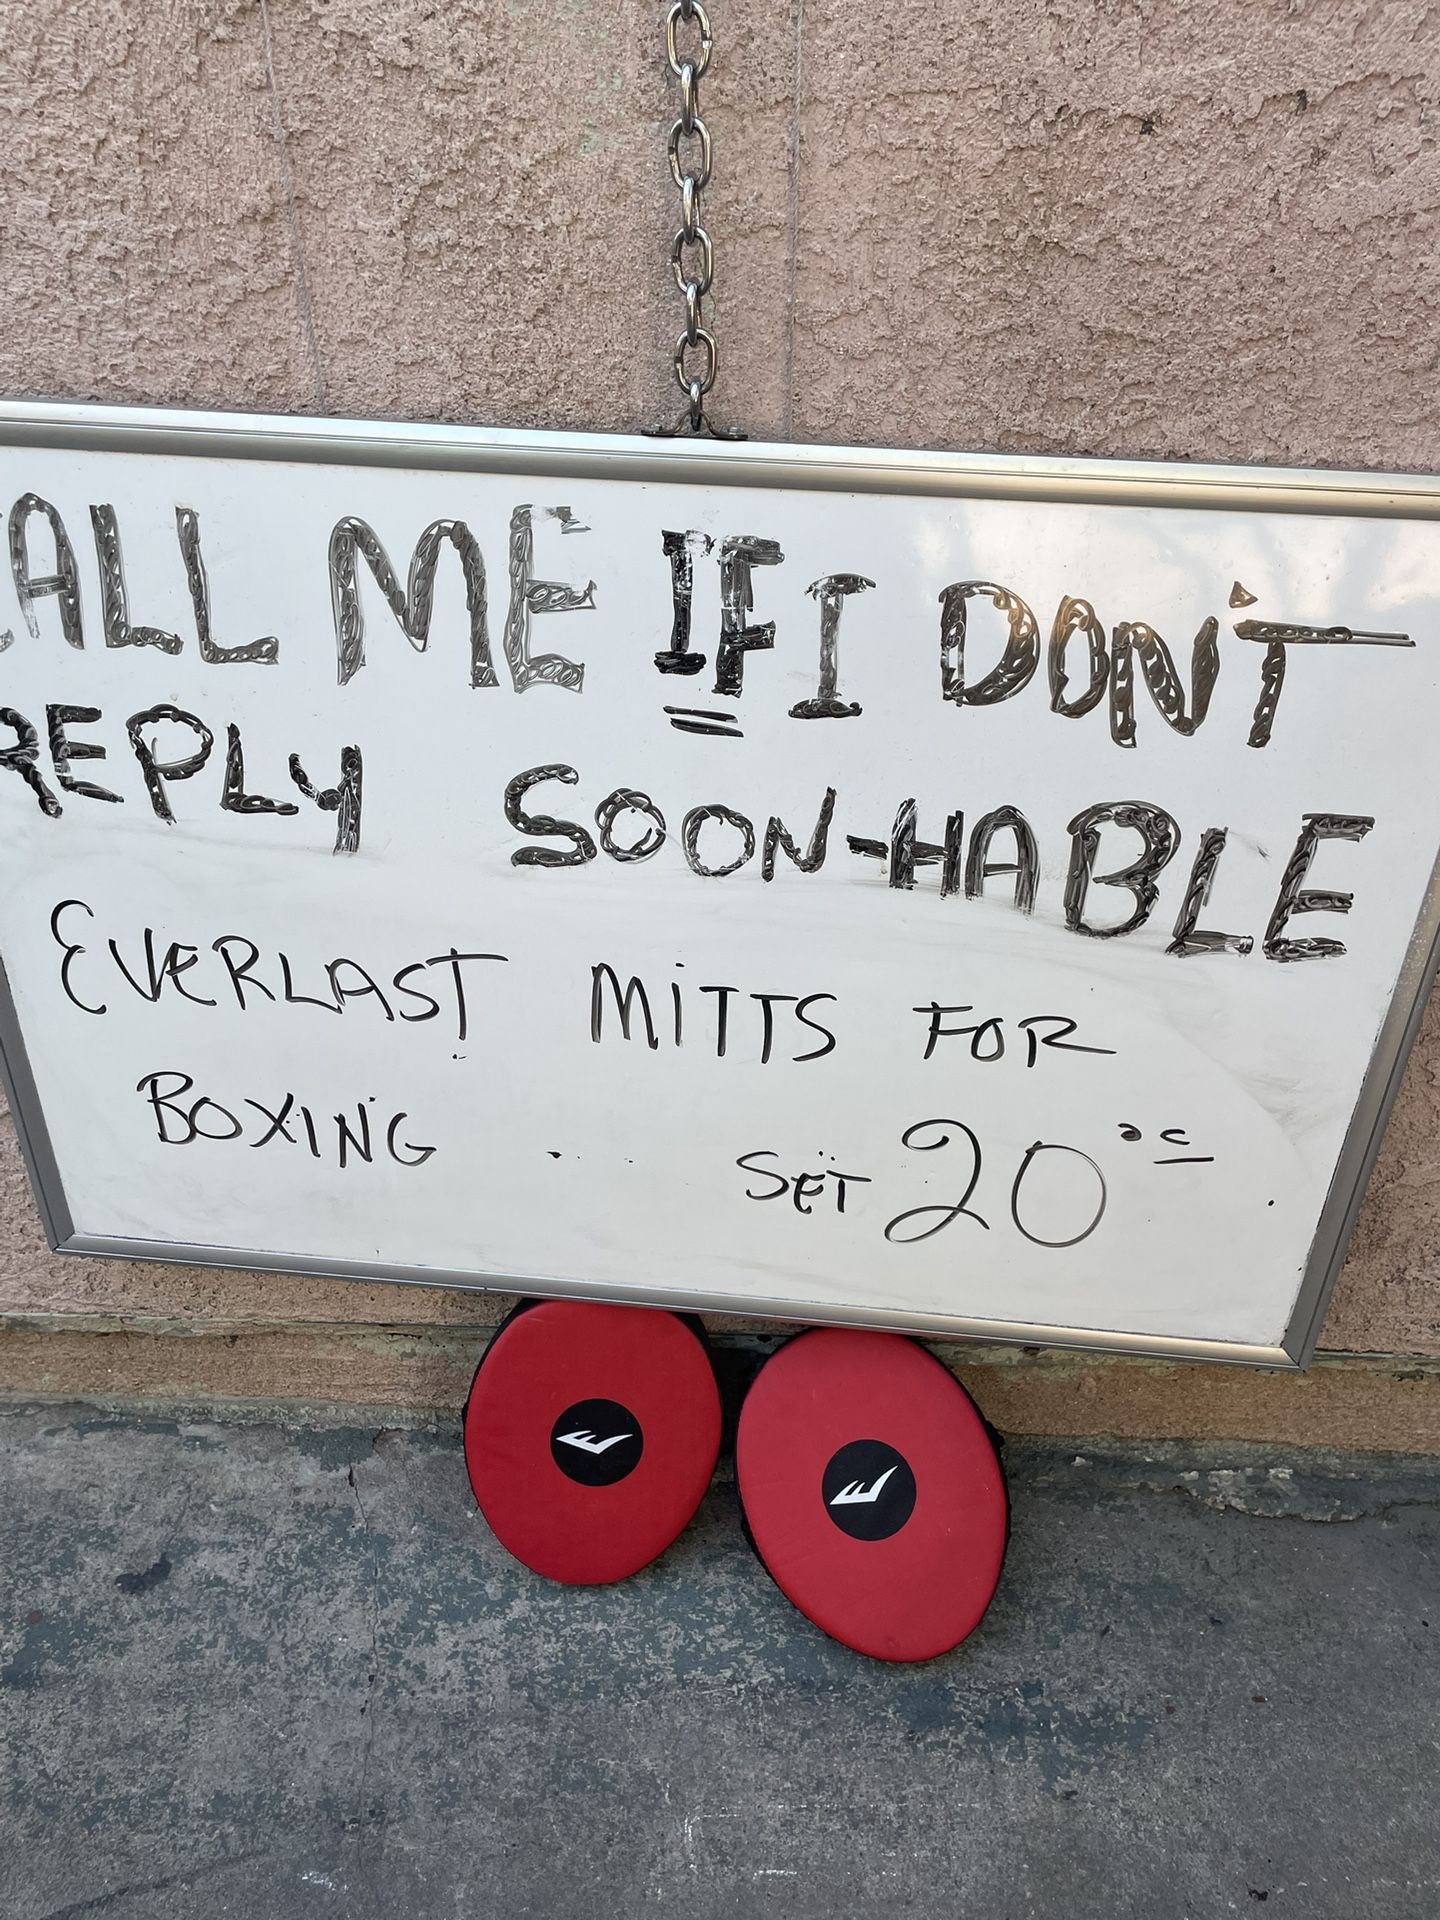 CALL ME IF I DON'T
REPLY SOON-HABLE
EVERLAST MITTS FOR
BOXING .. SET 20 00